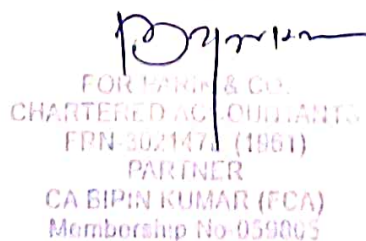 FOR & CO.
CHARTERED ACCOUNTANTS
(1981)
PARTNER
CA BIPIN KUMAR (FCA)
Membership No-059805